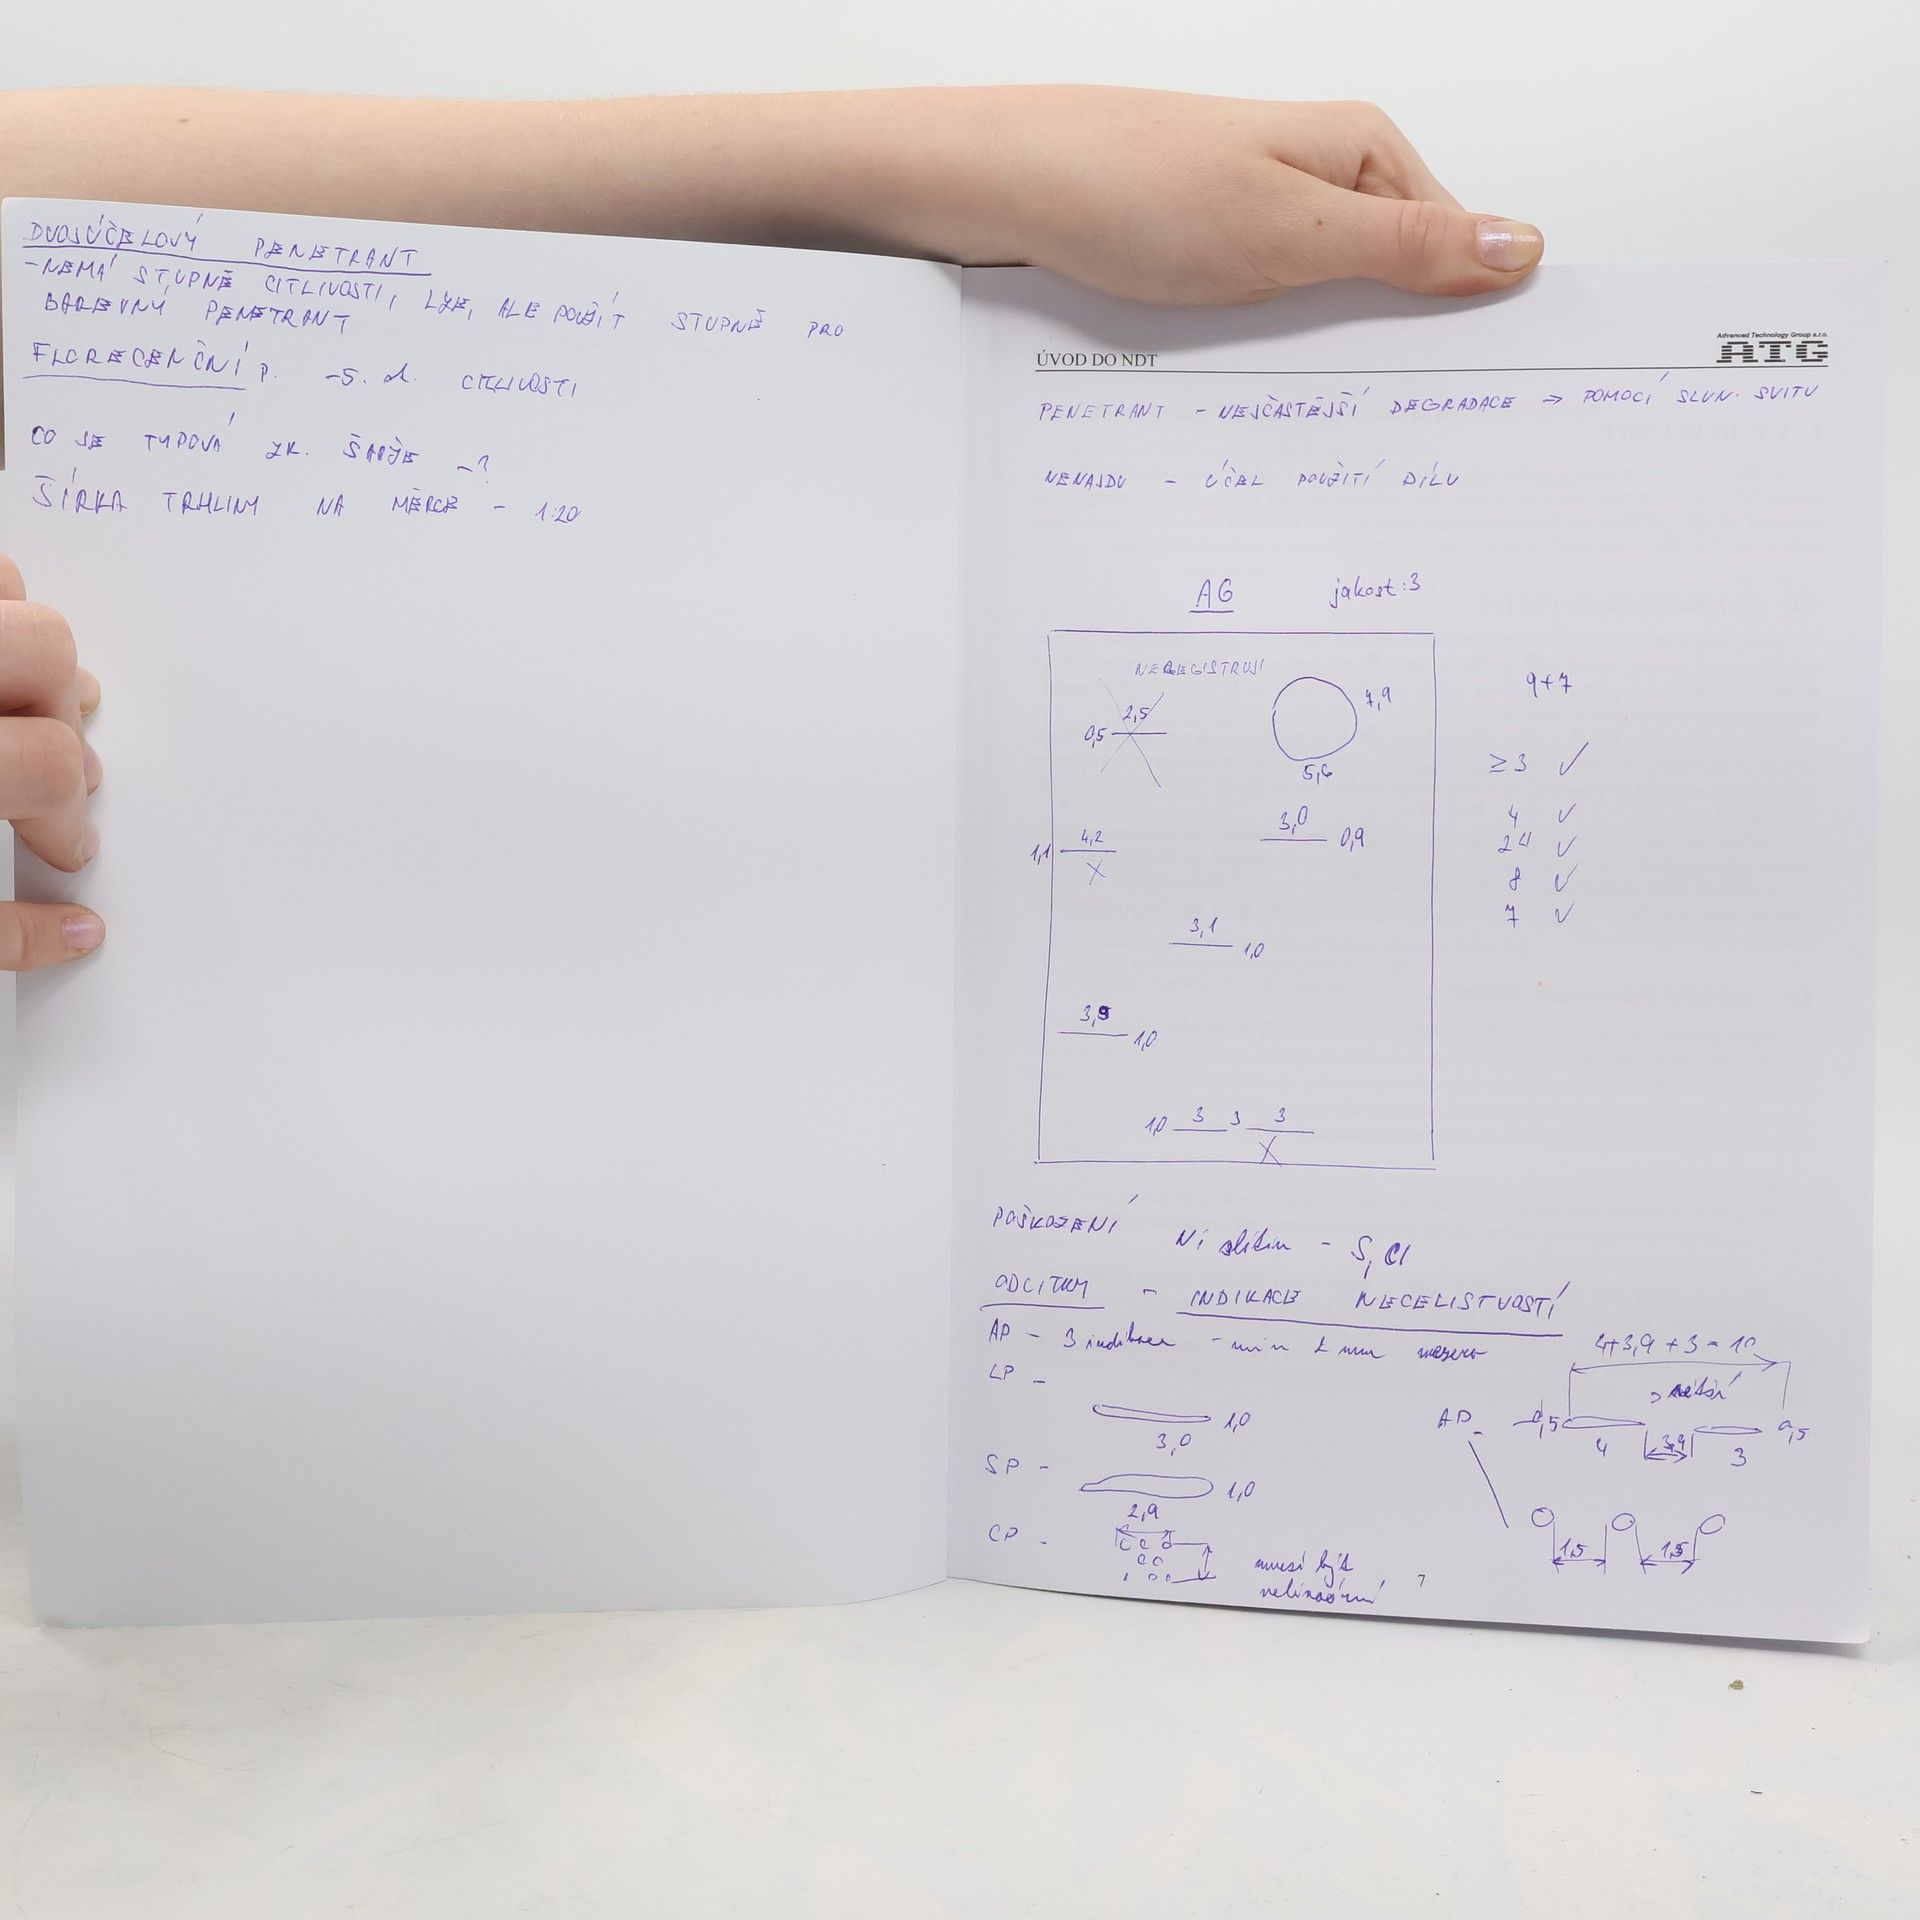 DVOJÚČELOVÝ PENETRANT
- NEMÁ STUPNĚ CITLIVOSTI, LZE, ALE POUŽÍT STUPNĚ PRO
BAREVNÝ PENETRANT
FLORECENČNÍ P. - 5. CITLIVOSTI
CO SE TYPOVÁ ZK. ŠARŽE - ?
ŠÍRKA TRHLINY NA MĚRCE - 1:20
Advanced Technology Group s.r.o.
ATG
ÚVOD DO NDT
PENETRANT - NEJČASTĚJŠÍ DEGRADACE ⇒ POMOCÍ SLUN. SVITU
NENAJDU - ÚČEL POUŽITÍ DÍLU
AG jakost: 3
NEREGISTRUJI
0,5 2,5
7,9
5,6
9+7
≥ 3 ✓
4 ✓
24 ✓
8 ✓
7 ✓
1,1 4,2 X
3,0 0,9
3,1 1,0
3,9 1,0
1,0 3 3 3 X
POŠKOZENÍ Ni slitin - S, Cl
ODCITKY - INDIKACE NECELISTVOSTÍ
AP - 3 indikace - min 2 mm mezera
LP -
3,0 1,0
SP -
1,0
CP -
2,9
musí být
nelineární
4+3,9+3=10
> větší
AP - 0,5 4 3,9 3 0,5
1,5 1,5
7